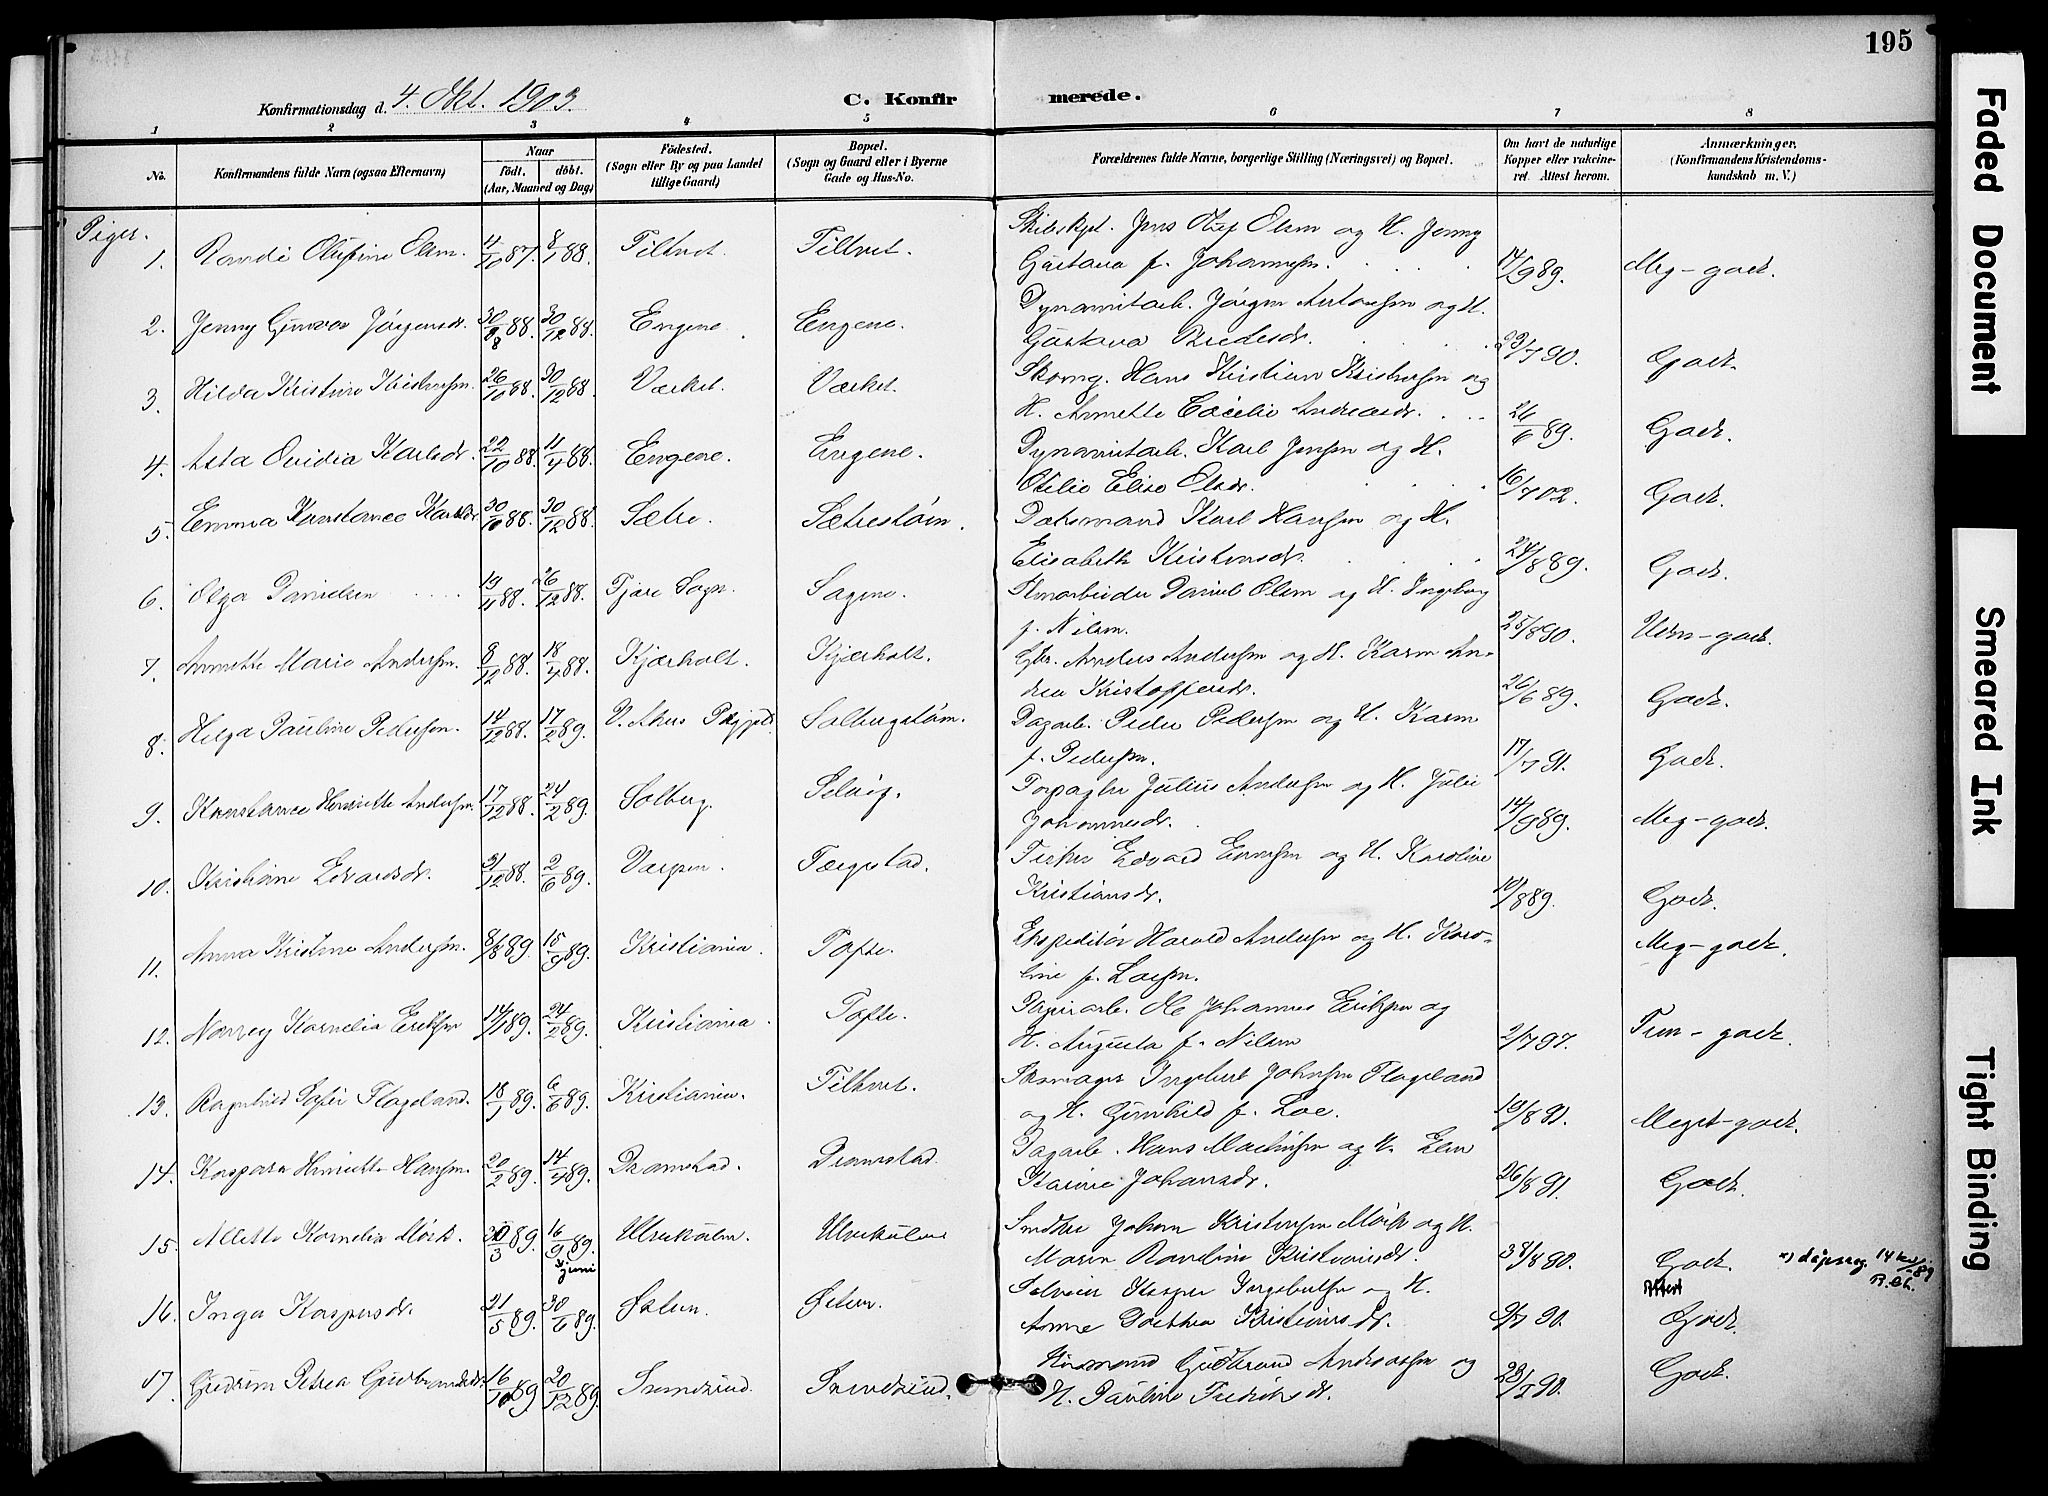 195
Konfirmationsdag d. 4. Okt. 1903.
C. Konfirmerede.
1 2 3 4 5 6 7 8
No.
Konfirmandens fulde Navn (ogsaa Efternavn)
Naar
født. døbt.
(Aar, Maaned og Dag)
Fødested.
(Sogn eller By og paa Landet
tillige Gaard)
Bopæl.
(Sogn og Gaard eller i Byerne
Gade og Hus-No.
Forældrenes fulde Navne, borgerlige Stilling (Næringsvei) og Bopæl.
Om havt de naturlige
Kopper eller vaccine-
ret. Attest herom.
Anmærkninger.
(Konfirmandens Kristendoms-
kundskab m. V.)
Piger.
Skibskpt. Jens Olaf Olsen og H. Jenny
1. Randi Olufine Olsen. 4/10 87. 8/1 88. Filtvet. Filtvet. Gustava f. Johannesen. 14/9 89. Meg-godt.
Dynamitarb. Jørgen Antonsen og H.
2. Jenny Gunvor Jørgensdr. 30/8 88. 30/12 88. Engene. Engene. Gustava Bredesdr. 23/7 90. Godt.
Skomg. Hans Kristian Kristensen og
3. Hilda Kristine Kristensen. 26/10 88. 30/12 88. Værket. Værket. H. Annette Cecilie Andreasdr. 26/6 89. Godt.
Dynamitarb. Karl Jensen og H.
4. Asta Ovidia Karlsdr. 22/10 88. 11/4 88. Engene. Engene. Otilie Elise Olsdr. 16/7 02. Godt.
Karl Hansen og H.
5. Emma Konstance Karlsdr. 30/10 88. 30/12 88. Sætre. Sætrestøen. Elisabeth Kristensdr. 24/8 89. Godt.
Daniel Olsen og H. Ingeborg
6. Olga Danielsen 19/11 88. 26/12 88. Tjøre Sogn. Sagene. f. Nilsen. 25/8 90. Uden-godt.
Gbr. Anders Andersen og H. Karen An-
7. Annette Marie Andersen. 8/12 88. 18/4 88. Kjærholt. Kjærholt. drea Kristoffersdr. 26/6 89. Godt.
Dagarb. Peder Pedersen og H. Karen
8. Helga Pauline Pedersen. 14/12 88. 17/2 89. V. Akers Prgjeld. Solbergstøen. f. Pedersen. 17/7 91. Godt.
Forpagter Julius Andersen og H. Julie
9. Konstance Henriette Andersen. 17/12 88. 24/2 89. Solberg. Selvig. Johannesdr. 14/9 89. Meg-godt.
Fisker Edvard Evensen og H. Karoline
10. Kristiane Edvardsdr. 31/12 88. 2/6 89. Færgstad. Kristiansdr. 10/8 89. Godt.
Ekspeditør Harald Andersen og H. Karo-
11. Anna Kristine Andersen. 8/8 89. 15/9 89. Kristiania. Tofte. line f. Larsen. Meg-godt.
Papirarb. Ole Johannes Eriksen og
12. Kornelia Eriksen 14/1 89. 24/2 89. Kristiania. Tofte. H. Augusta f. Nilsen 2/7 97. Tem-godt.
Skomager Ingebret Johnsen Flageland
13. Ragnhild Sofie Flageland. 18/1 89. 6/6 89. Kristiania. Filtvet. og H. Gunhild f. Loe. 19/8 91. Meget-godt.
Dagarb. Hans Martinsen og H. Elen
14. Kaspara Henriette Hansen. 20/2 89. 14/4 89. Dramstad. Dramstad. Karine Johansdr. 26/8 91. Godt.
Johan Kristensen Mørk og H.
15. Allette Kornelia Mørk. 30/3 89. 16/9 89. juni Ulvekulen. Ulvekulen Maren Randine Kristiansdr. 8/8 90. Godt. x) dåpsreg. 14 k. /89 R.Ch.
Attest
Selveier Kasper Ingebretsen og H.
16. Inga Kaspersdr. 21/5 89. 30/6 89. Østen. Østen. Anne Dorthea Kristiansdr. 9/7 90. Godt.
Husmand Gudbrand Andreassen og
17. Gudrun Petrea Gudbrandsdr. 16/10 89. 20/12 89. Trondrud. Trondrud. H. Pauline Fredriksdr. 23/7 90. Godt.
Faded Document
Smeared Ink
Tight Binding